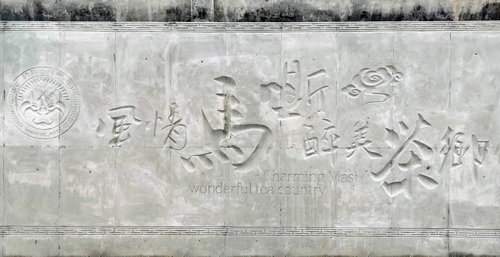 風情馬斯醉美茶鄉
Charming Masi
wonderful tea country